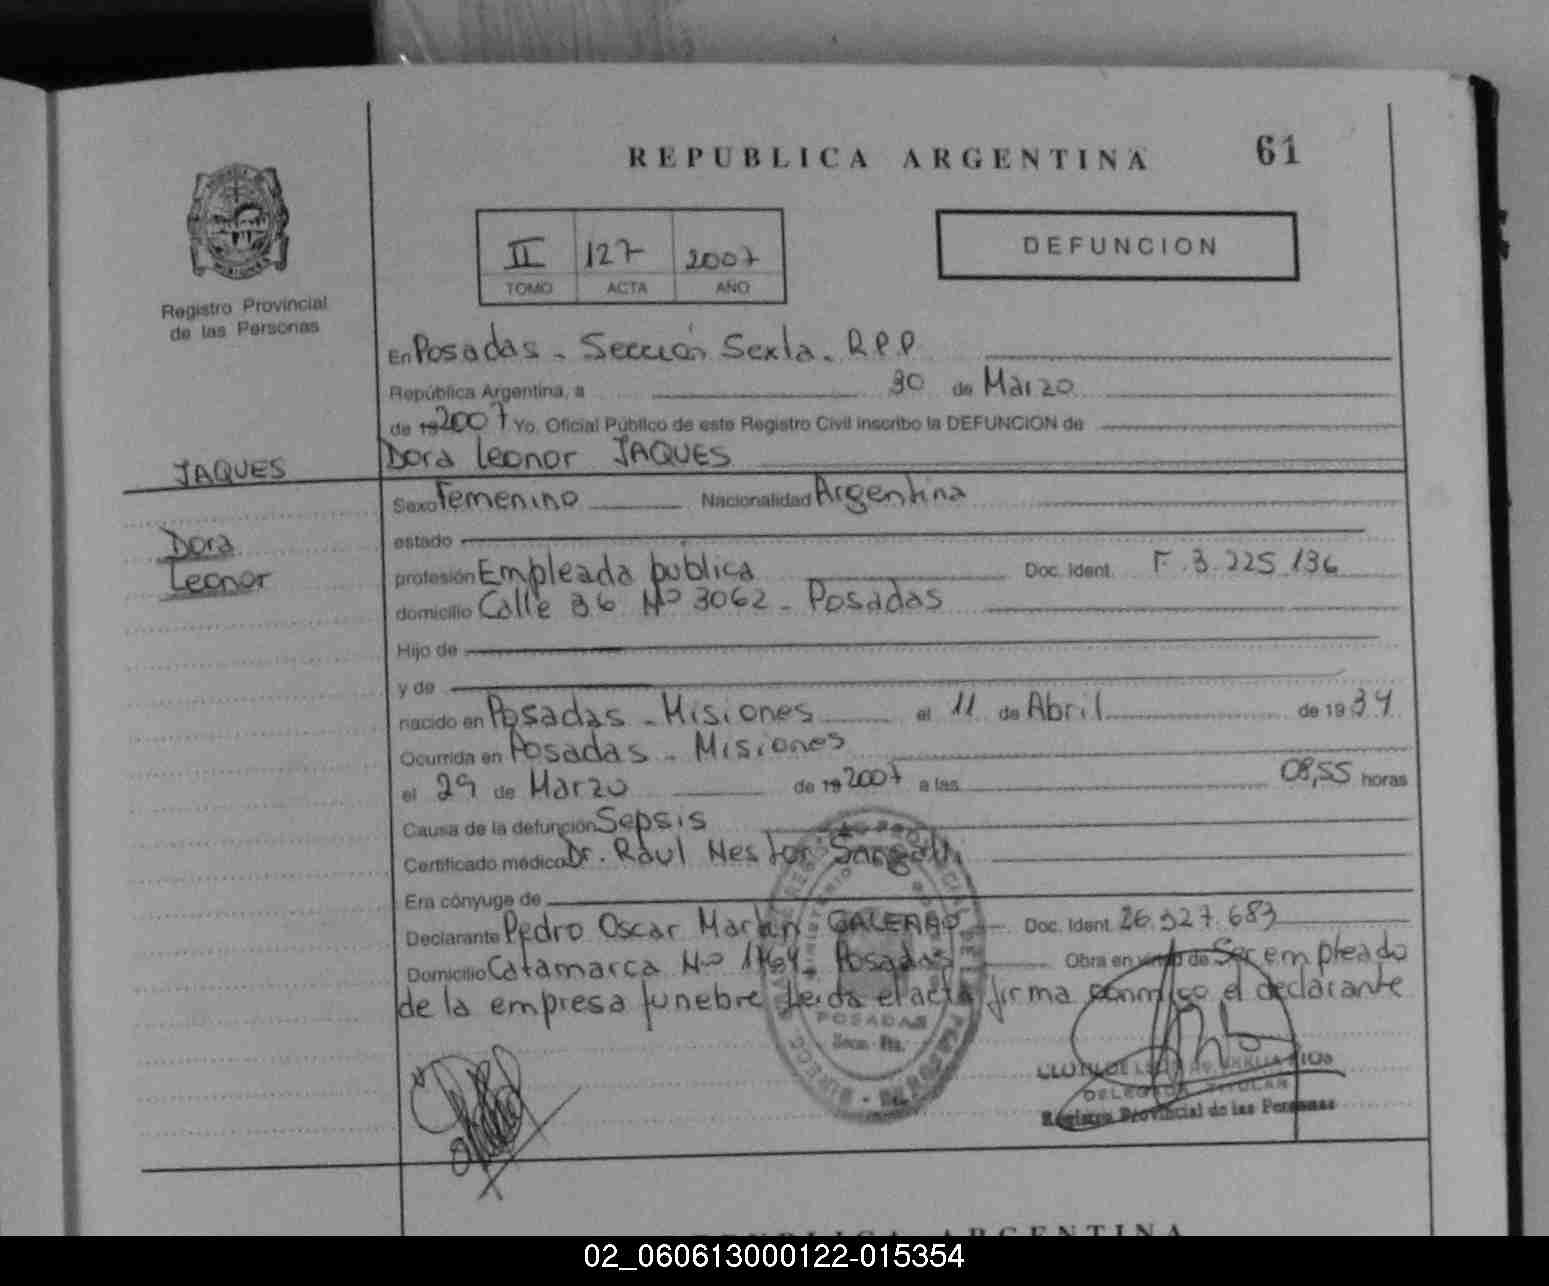 REPUBLICA ARGENTINA 61
Registro Provincial
de las Personas
II 127 2007
TOMO ACTA AÑO
DEFUNCION
En Posadas - Sección Sexta. R.P.P.
República Argentina, a 30 de Marzo
de 192007 Yo, Oficial Público de este Registro Civil inscribo la DEFUNCION de
JAQUES
Dora Leonor JAQUES
Dora
Leonor
Sexo Femenino Nacionalidad Argentina
estado
profesión Empleada publica Doc. Ident. F. 3.225.136
domicilio Calle 36 Nº 3062 - Posadas
Hijo de
y de
nacido en Posadas - Misiones el 11 de Abril de 1934
Ocurrida en Posadas - Misiones
el 29 de Marzo de 192007 a las 08,55 horas
Causa de la defunción Sepsis
Certificado médico Dr. Raul Nestor
Era cónyuge de
Declarante Pedro Oscar Martin GALEANO Doc. Ident. 26.327.683
Domicilio Catamarca Nº 1764 Posadas Obra en virtud de Ser empleado
de la empresa funebre Leida el acta firma conmigo el declarante
POSADAS
Secn. 6ta.
DELEGADA TITULAR
Registro Provincial de las Personas
REPUBLICA ARGENTINA
02_060613000122-015354